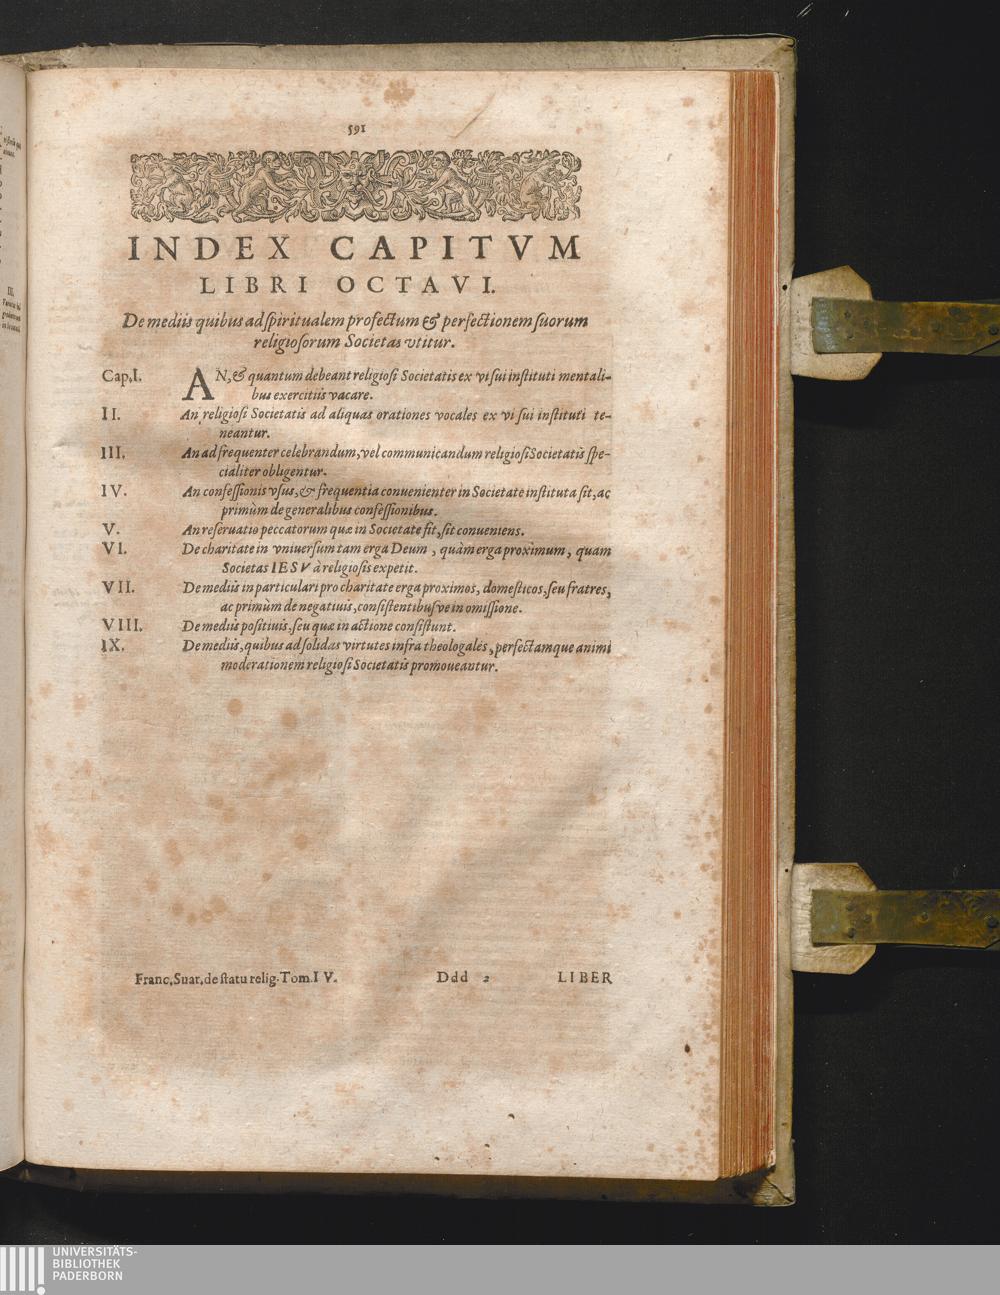 591
INDEX CAPITVM
LIBRI OCTAVI.
De mediis quibus ad spiritualem profectum & perfectionem suorum
religiosorum Societas vtitur.
Cap. I. AN, & quantum debeant religiosi Societatis ex vi sui instituti mentali-
bus exercitiis vacare.
II. An religiosi Societatis ad aliquas orationes vocales ex vi sui instituti te-
neantur.
III. An ad frequenter celebrandum, vel communicandum religiosi Societatis spe-
cialiter obligentur.
IV. An confessionis vsus, & frequentia conuenienter in Societate instituta sit, ac
primùm de generalibus confessionibus.
V. An reseruatio peccatorum quæ in Societate fit, sit conueniens.
VI. De charitate in vniuersum tam erga Deum, quàm erga proximum, quam
Societas IESV à religiosis expetit.
VII. De mediis in particulari pro charitate erga proximos, domesticos, seu fratres,
ac primùm de negatiuis, consistentibusve in omissione.
VIII. De mediis positiuis, seu quæ in actione consistunt.
IX. De mediis, quibus ad solidas virtutes infra theologales, perfectamque animi
moderationem religiosi Societatis promoueantur.
Franc. Suar. de statu relig. Tom. IV. Ddd 2 LIBER
UNIVERSITÄTS-
BIBLIOTHEK
PADERBORN